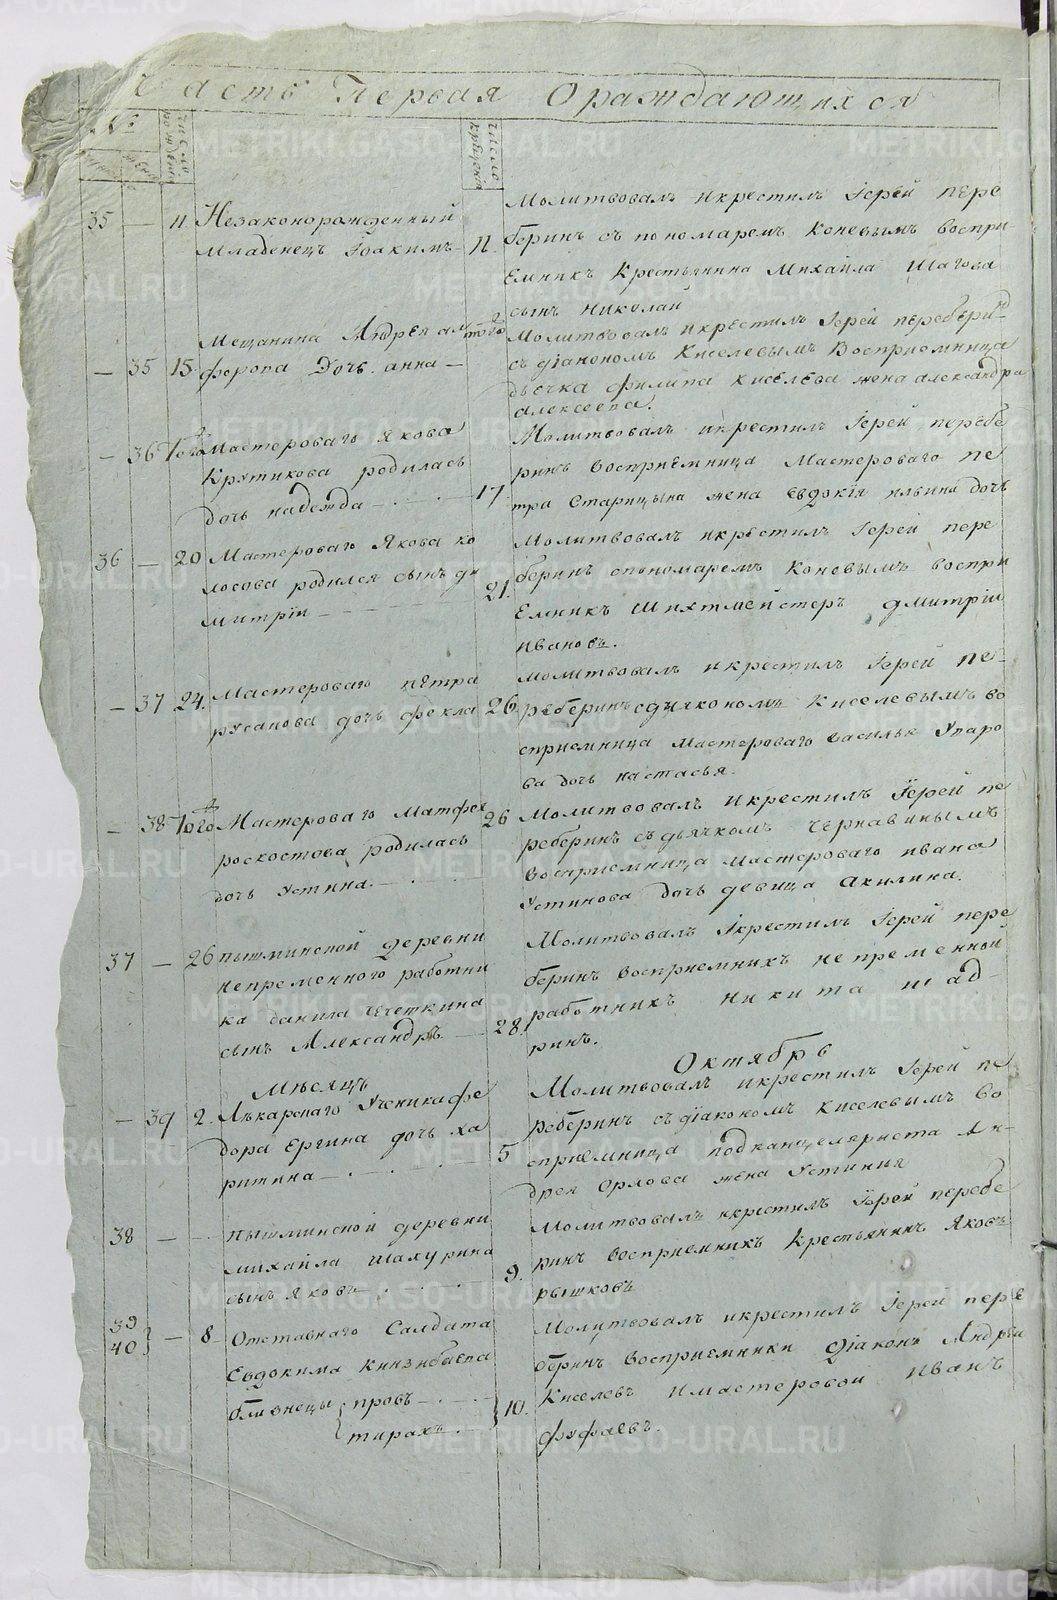 Часть Первая Ораждающихся
№
число рождения
число крещения
35 — 11 Незаконорожденный
младенец Иоакимъ 11.
Молитвовалъ икрестилъ Іерей пере
беринъ съ пономаремъ Коневымъ воспри
Емникъ Крестьянина Михаила Шагова
сынъ Николай
Мещанина Андрея
— 35 15 дочь анна — того
Молитвовалъ икрестилъ Іерей перебери
съ діакономъ Киселевымъ Восприемница
дьячка филипа киселева жена александра
алексеева.
— 36 того Мастероваго якова
Крутикова родилась
дочь надежда — 17
Молитвовалъ икрестилъ Іерей перебе
ринъ восприемница Мастероваго пе
тра Старицына жена Евдокія ильина дочь
36 — 20 Мастероваго Якова ко
лосова родился сынъ ди
митріи — 21.
Молитвовалъ икрестилъ Іерей пере
беринъ спономаремъ Коневымъ воспри
Емникъ Шихтмейстеръ дмитріи
ивановъ.
— 37 24. Мастероваго пЕтра
русанова дочь фекла 26
Молитвовалъ икрестилъ Іерей пе-
реберинъ сдиякономъ Киселевымъ во
сприемница мастероваго василья Упоро
ва дочь настасья.
— 38 того Мастероваго Матфея
роскостова родилась
дочь Устина — 26
Молитвовалъ Икрестилъ Іерей пе
реберинъ съ дьячкомъ чернавинымъ
восприемница мастероваго ивана
Устинова дочь девица Акилина.
37 — 26 пышминской деревни
непременнаго работни
ка данила чечеткина
сынъ Александръ — 28.
Молитвовалъ Икрестилъ Іерей пере
беринъ восприемникъ непременной
работникъ никита шад-
ринъ.
Мѣсяцъ Октябрь
— 39 2. Лѣкарскаго Ученика фе
дора Ергина дочь ха
ритина — 5
Молитвовалъ икрестилъ Іерей пе
реберинъ съ діакономъ киселевымъ во
сприемница подканцеляриста Ан-
дрея Орлова жена Устиния
38 — пышминской деревни
михаила шахурина
сынъ яковъ 9.
Молитвовалъ икрестилъ Іерей перебе
ринъ восприемникъ Крестьянинъ Яковъ
рышковъ
39
40 } — 8 Отставнаго Салдата
Евдокима Кинзибаева
близнецы { провъ —
тирахъ } 10.
Молитвовалъ икрестилъ Іерей пере
беринъ восприемники діаконъ Андрей
Киселевъ имастеровой Иванъ
фуфаевъ.